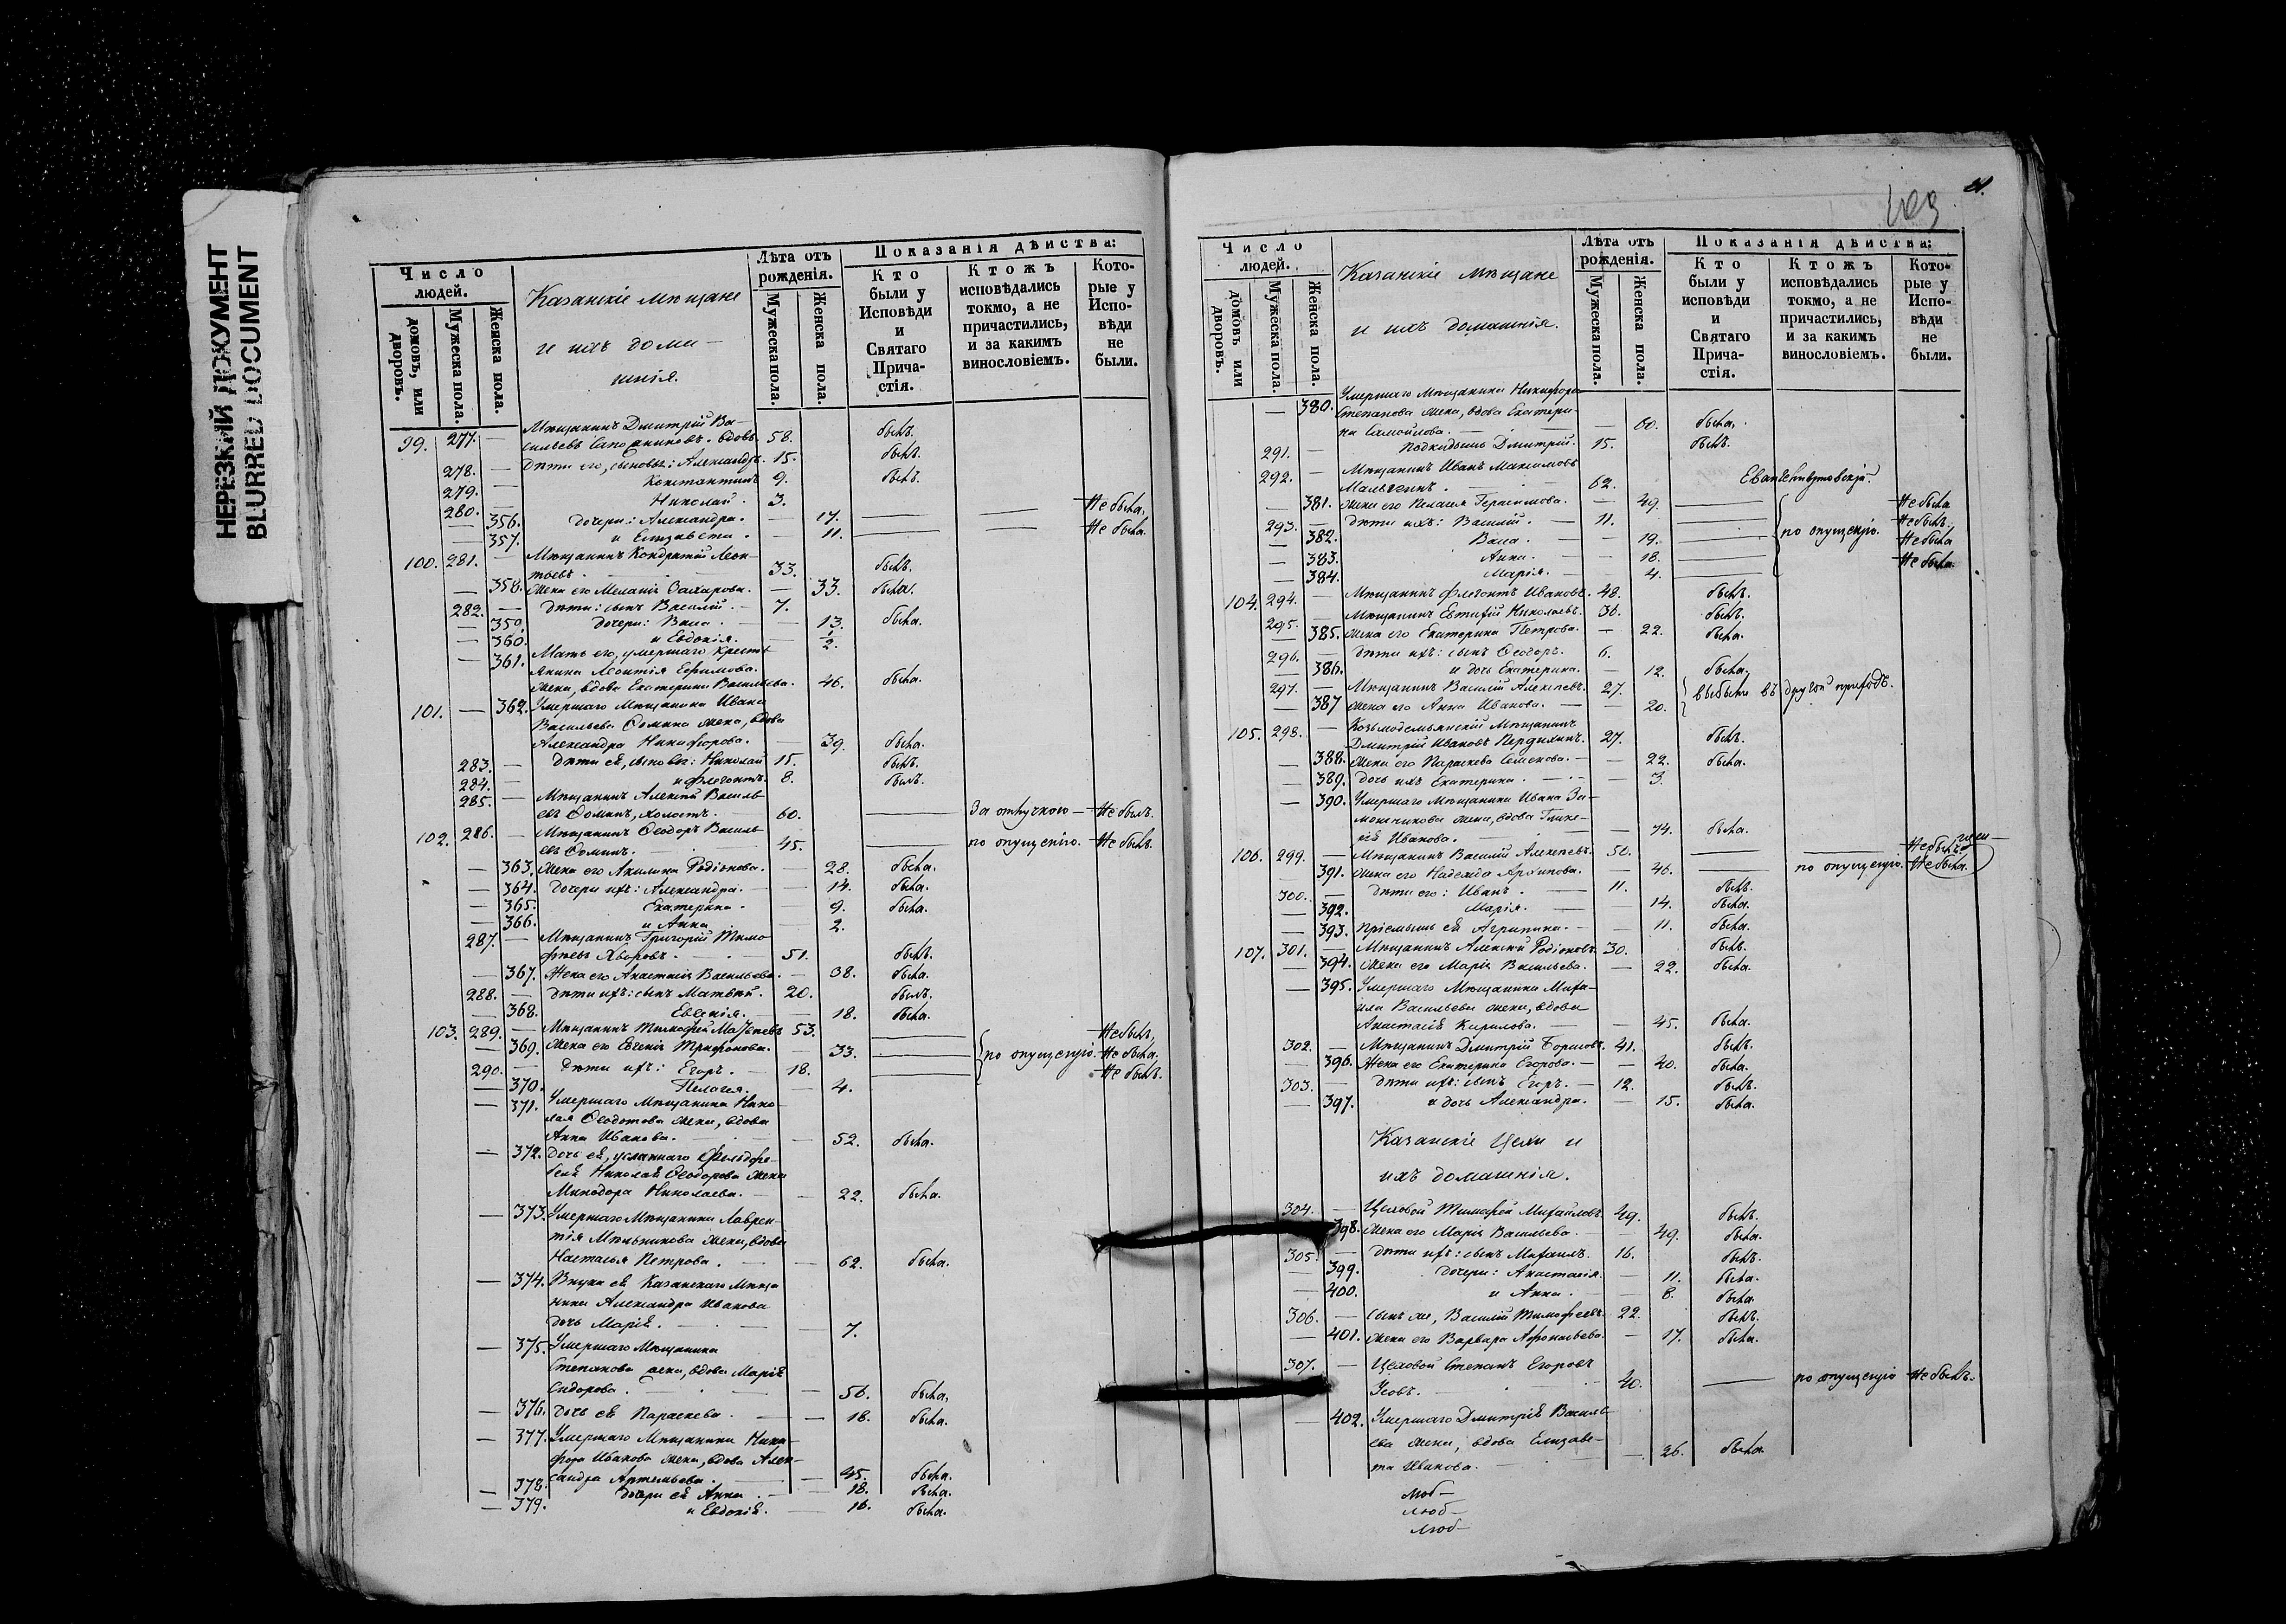 НЕРЕЗКИЙ ДОКУМЕНТ
BLURRED DOCUMENT
Число людей.
домовъ, или дворовъ.
Мужеска пола.
Женска пола.
Казанскіе мѣщане
и ихъ дома-
шнія.
Лѣта отъ рожденія.
Мужеска пола.
Женска пола.
Показанія дѣйства:
Кто были у Исповѣди и Святаго Прича-стія.
Ктожъ исповѣдались токмо, а не причастились, и за какимъ винословіемъ.
Кото-рые у Испо-вѣди не были.
99. 277. — Мѣщанинъ Дмитрій Ва-
сильевъ Сапожниковъ. вдовъ. 58. былъ.
278. — Дѣти его, сыновья: Александръ. 15. былъ.
279. — Константинъ 9. былъ.
280. — Николай. 3.
— 356. дочери: Александра. — 17. — — Не была.
— 357. и Елизавета. — 11. — — Не была.
100. 281. — Мѣщанинъ Кондратій Леон-
тьевъ. 33. былъ.
— 358. Жена его Меланія Захарова. — 33. была.
282. — Дѣти: сынъ Василій. — 7.
— 359. дочери: Васса. — 13. была.
— 360. и Евдокія. — 2.
— 361. Мать его, умершаго кресть-
янина Леонтія Ефимова
жена, вдова Екатерина Васильева. 46. была.
101. — 362. Умершаго Мѣщанина Ивана
Васильева Фомина жена, вдова
Александра Никифорова. — 39. была.
283. — Дѣти ея, сыновья: Николай 15. былъ.
284. — и Флегонтъ. 8. былъ.
285. — Мѣщанинъ Алексѣй Василь-
евъ Фоминъ, холостъ. 60. — За отлучкою — Не былъ.
102. 286. — Мѣщанинъ Ѳеодоръ Василь-
евъ Фоминъ. 45. — по опущенію. Не былъ.
— 363. Жена его Акилина Родіонова. — 28. была.
— 364. Дочери ихъ: Александра. — 14. была.
— 365. Екатерина. — 9. была.
— 366. и Анна — 2.
287. — Мѣщанинъ Григорій Тимо-
фѣевъ Хворовъ. 51. былъ.
— 367. Жена его Анастасія Васильева. — 38. была.
288. — Дѣти ихъ: сынъ Матвѣй. 20. былъ.
— 368. Евгенія. — 18. была.
103. 289. — Мѣщанинъ Тимофей 53. — Не былъ,
— 369. Жена его Евгенія Трифонова. — 33. — по опущенію. Не была,
290. — Дѣти ихъ: Егоръ. — 18. — Не былъ.
— 370. Пелагея. — 4.
— 371. Умершаго Мѣщанина Нико-
лая Ѳеодотова жена, вдова
Анна Иванова. — 52. была.
— 372. Дочь ея, усланнаго Фельдфе-
беля Николая Ѳеодорова жена
Минодора Николаева. — 22. была.
— 373. Умершаго Мѣщанина Лаврен-
тія Мѣльникова жена, вдова
Настасья Петрова. — 62. была.
— 374. Внука ея Казанскаго Мѣща-
нина Александра Иванова
дочь Марія. 7.
— 375. Умершаго Мѣщанина
Степанова жена, вдова Марія
Сидорова. — 56. была,
— 376. Дочь ея Параскева. — 18. была.
— 377. Умершаго Мѣщанина Ники-
фора Иванова жена, вдова Алек-
сандра Артемьева. — 45. была.
— 378. Дочери ея Анна. — 18. была.
— 379. и Евдокія. — 16. была.
Число людей.
домовъ или дворовъ.
Мужеска пола.
Женска пола.
Казанскіе мѣщане
и ихъ домашнія.
Лѣта отъ рожденія.
Мужеска пола.
Женска пола.
Показанія дѣйства:
Кто были у исповѣди и Святаго Прича-стія.
Ктожъ исповѣдались токмо, а не причастились, и за какимъ винословіемъ.
Кото-рые у Испо-вѣди не были.
— 380. Умершаго Мѣщанина Никифора
Степанова жена, вдова Екатери-
на Самойлова. — 60. была.
291. — Подкидышъ Дмитрій. 15. былъ.
292. — Мѣщанинъ Иванъ Максимовъ
62.
— 381. Жена его Пелагея Герасимова. — 49. — Не была
293. — Дѣти ихъ: Василій. — 11. — Не былъ.
— 382. Васса. — 19. — по опущенію. Не была
— 383. Анна. — 18. — Не была.
— 384. Марія. — 4. —
104. 294. — Мѣщанинъ Флегонтъ Ивановъ. 48. былъ.
295. — Мѣщанинъ Евтихій Николаевъ. 36. былъ.
— 385. Жена его Екатерина Петрова. — 22. была.
296. — Дѣти ихъ: сынъ Ѳеодоръ. 6.
— 386. и дочь Екатерина. — 12. была,
297. — Мѣщанинъ Василій Алексѣевъ. 27. выбыли въ другой приходъ.
— 387 Жена его Анна Иванова. — 20.
105. 298. — Козьмодемьянскій Мѣщанинъ
Дмитрій Ивановъ 27. былъ.
— 388. Жена его Параскева Семенова. — 22. была.
— 389. Дочь ихъ Екатерина. — 3.
— 390. Умершаго Мѣщанина Ивана За-
мошникова жена, вдова Глике-
рія Иванова. — 74. была.
106. 299. — Мѣщанинъ Василій Алексѣевъ. 50. — — Не былъ
— 391. Жена его Надежда Архипова. — 46. — по опущенію. Не была.
300. — Дѣти его: Иванъ. — 11. былъ.
— 392. Марія. — 14. была.
— 393. Пріемышъ ея Агрипина. — 11. была.
107. 301. — Мѣщанинъ Алексѣй Родіоновъ. 30. былъ.
— 394. Жена его Марія Васильева. — 22. была.
— 395. Умершаго Мѣщанина Миха-
ила Васильева жена, вдова
Анастасія Кирилова. — 45. была.
302. — Мѣщанинъ Дмитрій Борисовъ. 41. былъ.
— 396. Жена его Екатерина Егорова. — 40. была.
303. — Дѣти ихъ: сынъ Егоръ. — 12. былъ.
— 397. и дочь Александра. — 15. была.
Казанскіе Цехи и
ихъ домашнія.
304. — Цеховой Тимофей Михайловъ. 49. былъ.
398. Жена его Марія Васильева. — 49. была.
305. — Дѣти ихъ: сынъ Михаилъ. 16. былъ.
— 399. дочери: Анастасія. — 11. была.
— 400. и Анна. — 8. была.
306. — Сынъ же, Василій Тимофеевъ. 22. былъ.
— 401. Жена его Варвара Афонасьева. — 17. была.
307. — Цеховой Степанъ Егоровъ
Усовъ. 40. — по опущенію Не былъ.
— 402. Умершаго Дмитрія Василь-
ева жена, вдова Елизаве-
та Иванова. — 26. была.